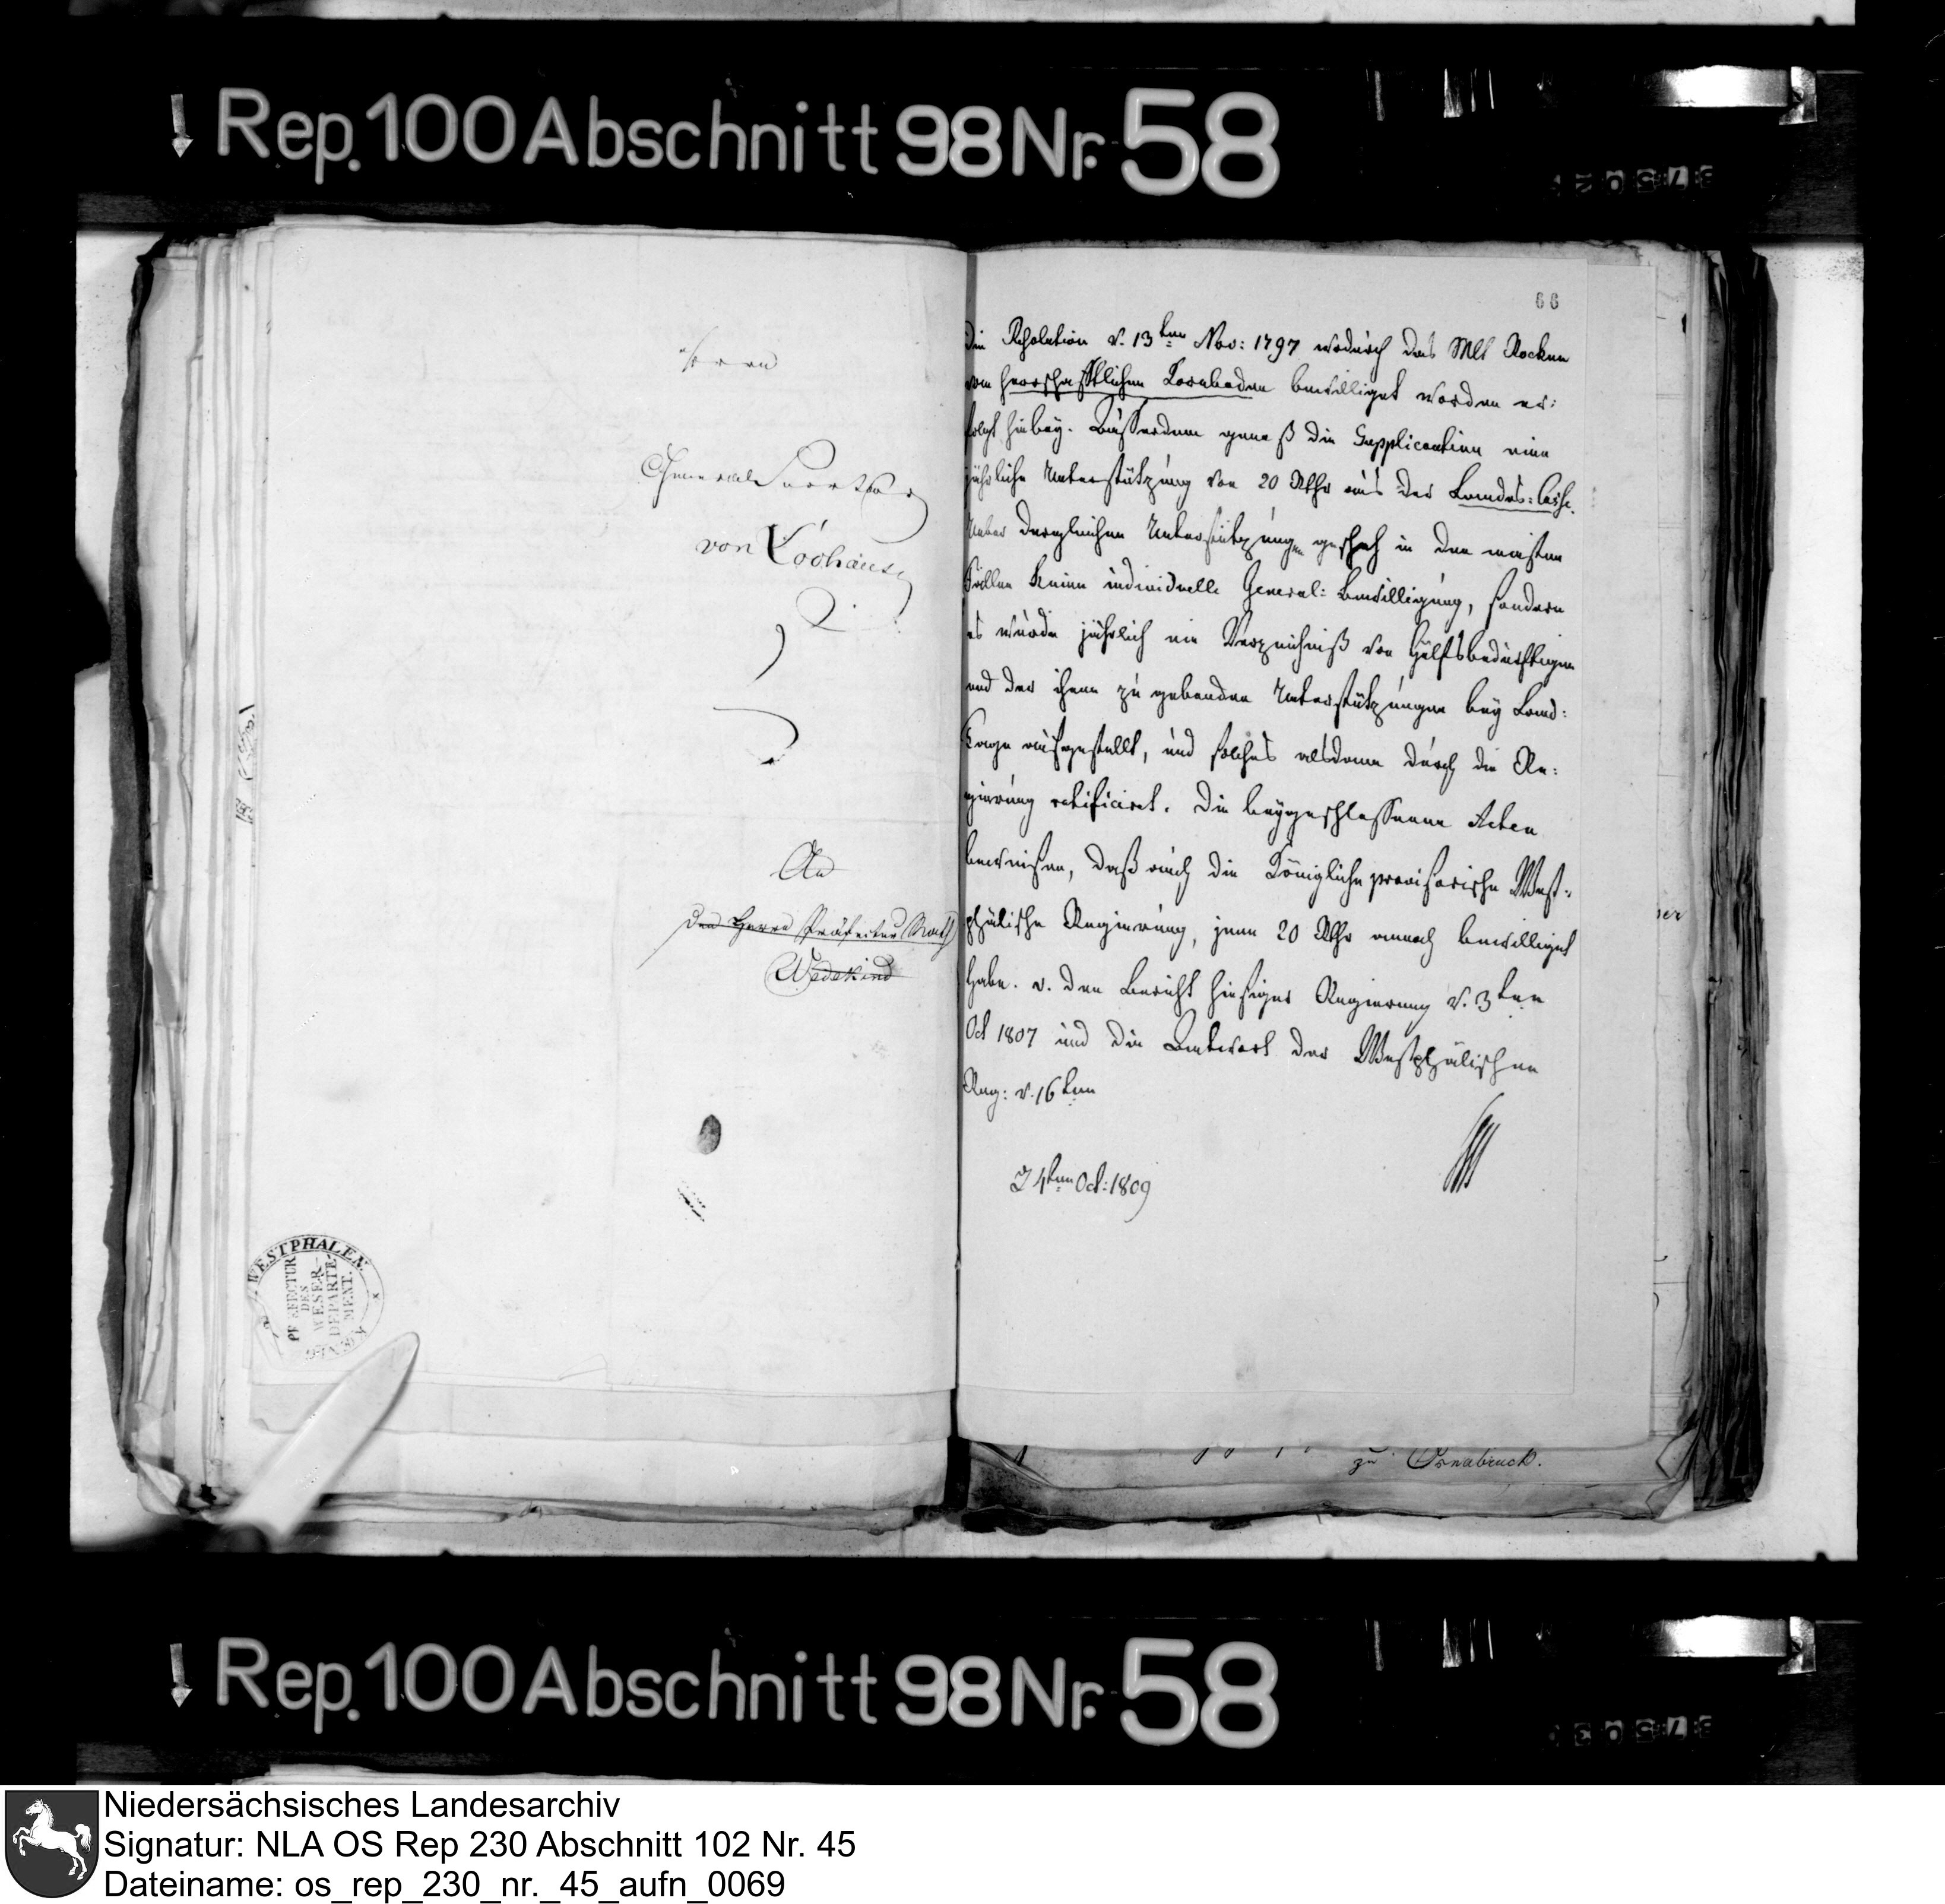 Rep. 100 Abschnitt 98 Nr. 58
Herrn
von
An
den Herrn Präfectur Rath
Wedekind
WESTPHALEN
PRAEFECTUR
DES
WESER-
DEPARTE
MENT.
66
Die Resolution v. 13ten Nov: 1797 wodurch das Mlt Rocken
vom herrschaftlichen Kornboden bewilliget worden er:
folgt hiebey. Ausserdem genoß die Supplicantinn eine
jährliche Unterstützung von 20 Rthr aus der Landes: Casse.
Ueber dergleichen Unterstützungen geschah in den meisten
Fällen keine individuelle General: Bewilligung, sondern
es wurde jährlich ein Verzeichniß von Hülfsbedürftigen
und der ihnen zu gebenden Unterstützungen bey Land:
Tage aufgestellt, und solches alsdann durch die Re:
gierung ratificirt. Die beygeschlossenen Acten
beweisen, daß auch die Königliche provisorische West-
phälische Regierung, jene 20 Rthr annoch bewilliget
habe. v. den Bericht hiesiger Regierung v. 3ten
Oct 1807 und die Antwort der Westphälischen
Reg: v. 16ten
4ten Oct: 1809
zu Osnabruck.
Rep. 100 Abschnitt 98 Nr. 58
Niedersächsisches Landesarchiv
Signatur: NLA OS Rep 230 Abschnitt 102 Nr. 45
Dateiname: os_rep_230_nr._45_aufn_0069